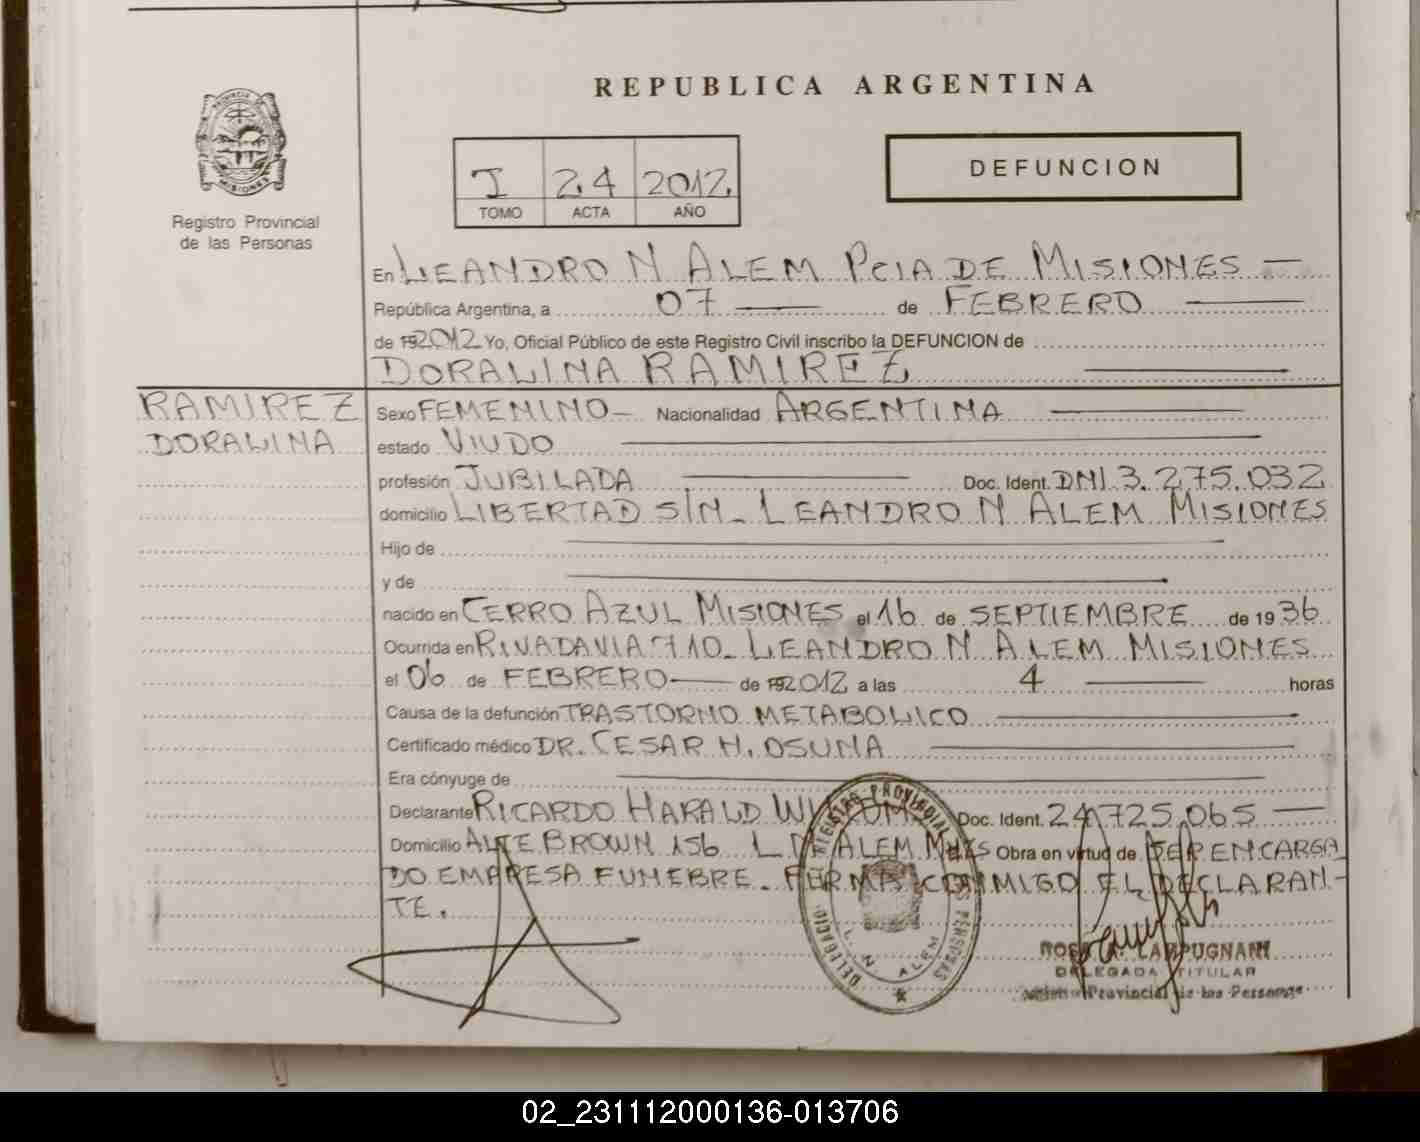 REPUBLICA ARGENTINA
PROVINCIA DE
MISIONES
Registro Provincial
de las Personas
I 24 2012
TOMO ACTA AÑO
DEFUNCION
En LEANDRO N ALEM PCIA DE MISIONES —
República Argentina, a 07 — de FEBRERO —
de 192012 Yo, Oficial Público de este Registro Civil inscribo la DEFUNCION de
DORALINA RAMIREZ —
RAMIREZ
DORALINA
Sexo FEMENINO — Nacionalidad ARGENTINA —
estado VIUDO —
profesión JUBILADA — Doc. Ident. DNI 3.275.032
domicilio LIBERTAD S/N - LEANDRO N ALEM MISIONES
Hijo de —
y de —
nacido en CERRO AZUL MISIONES el 16 de SEPTIEMBRE de 1936
Ocurrida en RIVADAVIA 710 - LEANDRO N ALEM MISIONES
el 06 de FEBRERO — de 192012 a las 4 — horas
Causa de la defunción TRASTORNO METABOLICO —
Certificado médico DR. CESAR H. OSUNA —
Era cónyuge de —
Declarante RICARDO HARALD Doc. Ident. 24.725.065 —
Domicilio ALTE BROWN 156 L N ALEM MNES Obra en virtud de SER ENCARGA
DO EMPRESA FUNEBRE. FIRMA CONMIGO EL DECLARAN-
TE.
REGISTRO PROVINCIAL DE LAS PERSONAS
DELEGACION
L. N. ALEM
ROSA A. LAMPUGNANI
DELEGADA TITULAR
Provincial de las Personas
02_231112000136-013706